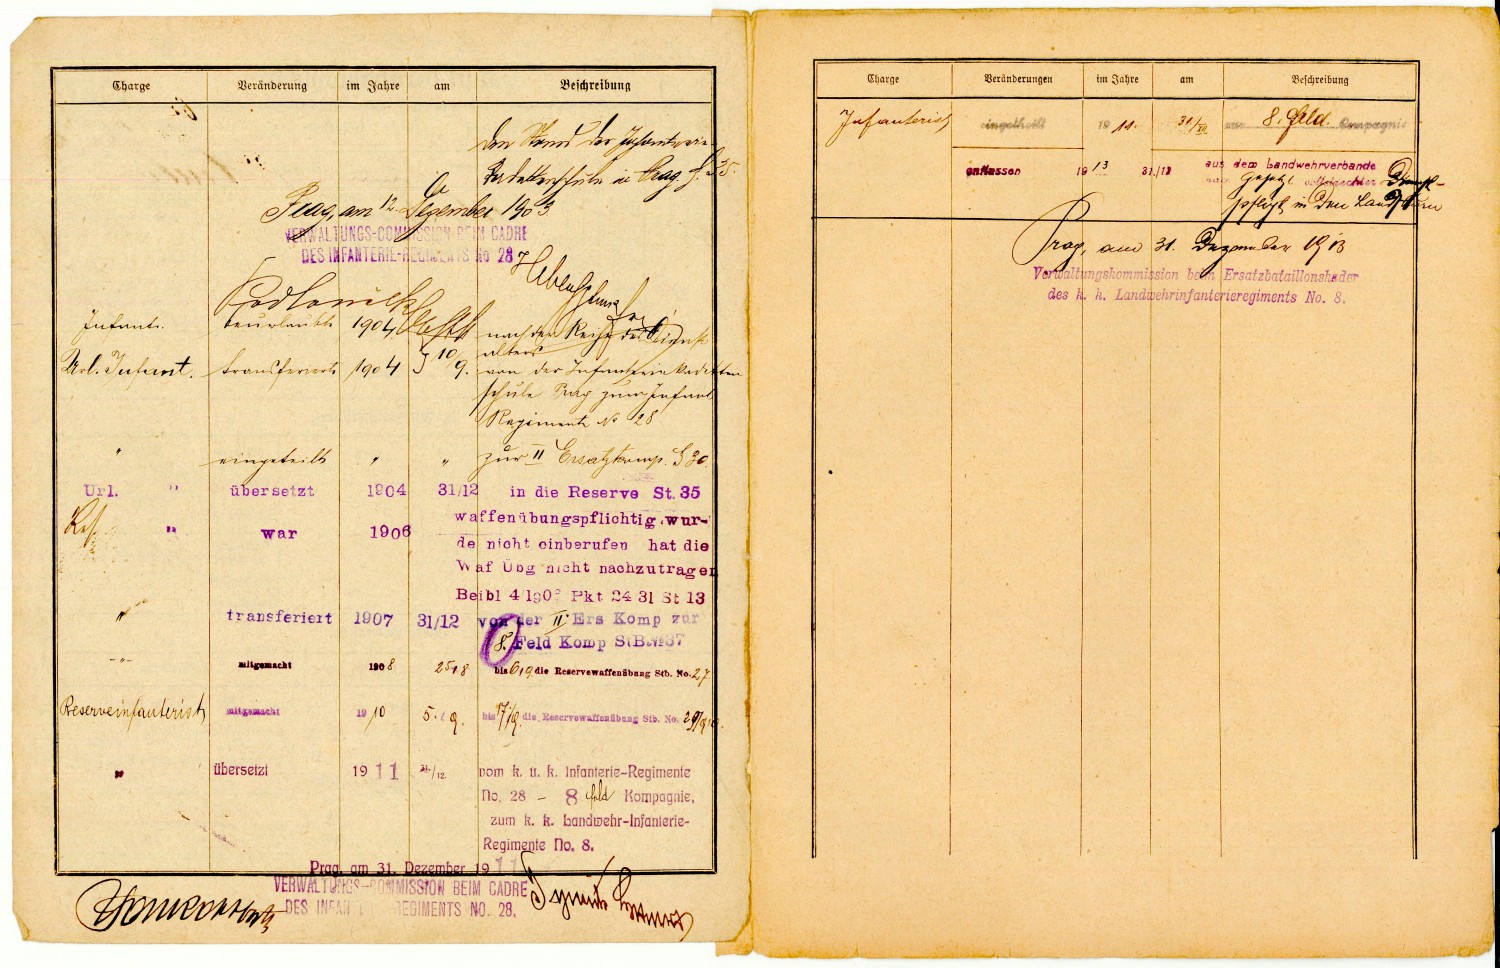 Charge Veränderung im Jahre am Beschreibung
den Stand der Infanterie
Kadettenschule in Prag § 35.
Prag, am 12. Dezember 1903
VERWALTUNGS-COMMISSION BEIM CADRE
DES INFANTERIE-REGIMENTS No 28
Infant. beurlaubt 1904 nach der Reihe des Dienst
alters
Url. Infant. transferiert 1904 10/9. von der Infanteriekadetten
schule Prag zum Infant.
Regimente No 28
" eingeteilt " " zur II Ersatzkomp. § 30.
Url. " übersetzt 1904 31/12 in die Reserve St. 35
Res. " war 1906 waffenübungspflichtig, wur-
de nicht einberufen hat die
Waf Übg nicht nachzutragen
Beibl 4/190 Pkt 24 31 St 13
" transferiert 1907 31/12 von der II Ers Komp zur
8. Feld Komp StB. No 37
-"- mitgemacht 1908 25/8 bis 6/9 die Reservewaffenübung Stb. No. 27.
Reserveinfanterist mitgemacht 1910 5./9. bis 17/9. die Reservewaffenübung Stb. No. 29/910
" übersetzt 1911 31./12. vom k. u. k. Infanterie-Regimente
No. 28 – 8 feld Kompagnie,
zum k. k. Landwehr-Infanterie-
Regimente No. 8.
Prag, am 31. Dezember 1911
VERWALTUNGS-COMMISSION BEIM CADRE
DES INFANTERIE-REGIMENTS NO. 28.
Charge Veränderungen im Jahre am Beschreibung
Infanterist eingeteilt 1911. 31/XII zur 8. Feld. Kompagnie
entlassen 1913 31./12 aus dem Landwehrverbande
nach Gesetzl vollstreckter Dienst-
pflicht in den Landsturm
Prag, am 31. Dezember 1913
Verwaltungskommission beim Ersatzbataillonskader
des k. k. Landwehrinfanterieregiments No. 8.